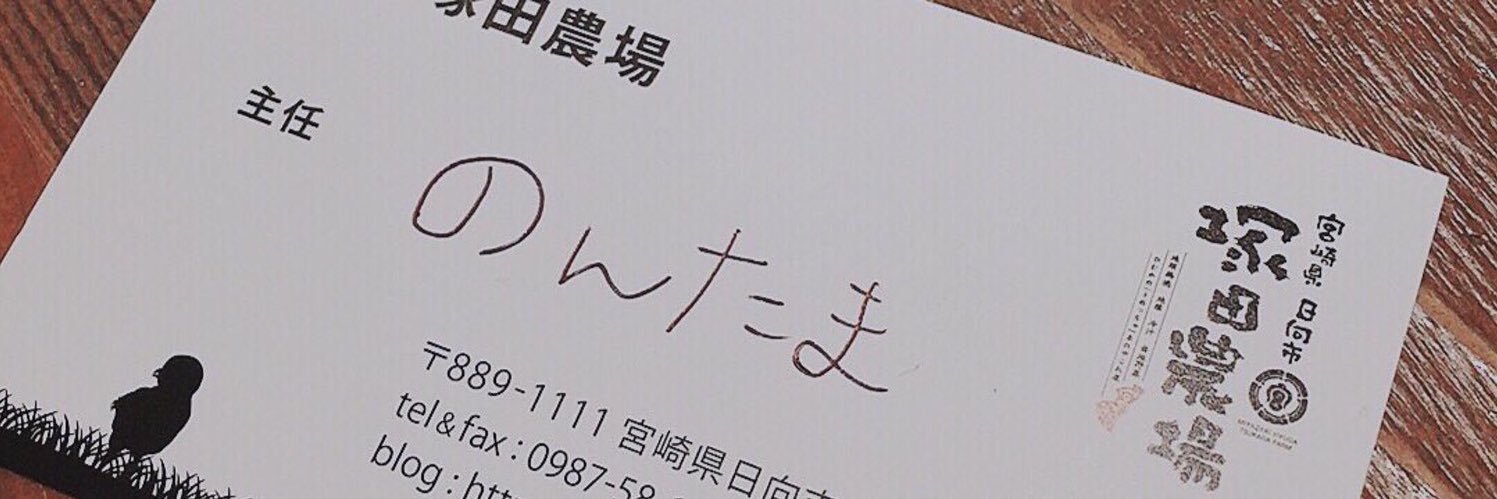 塚田農場
主任
のんたま
〒889-1111 宮崎県日向市
tel&fax : 0987-58
blog : htt
宮崎県 日向市
塚田農場
MIYAZAKI HYUGA
TSUKADA FARM